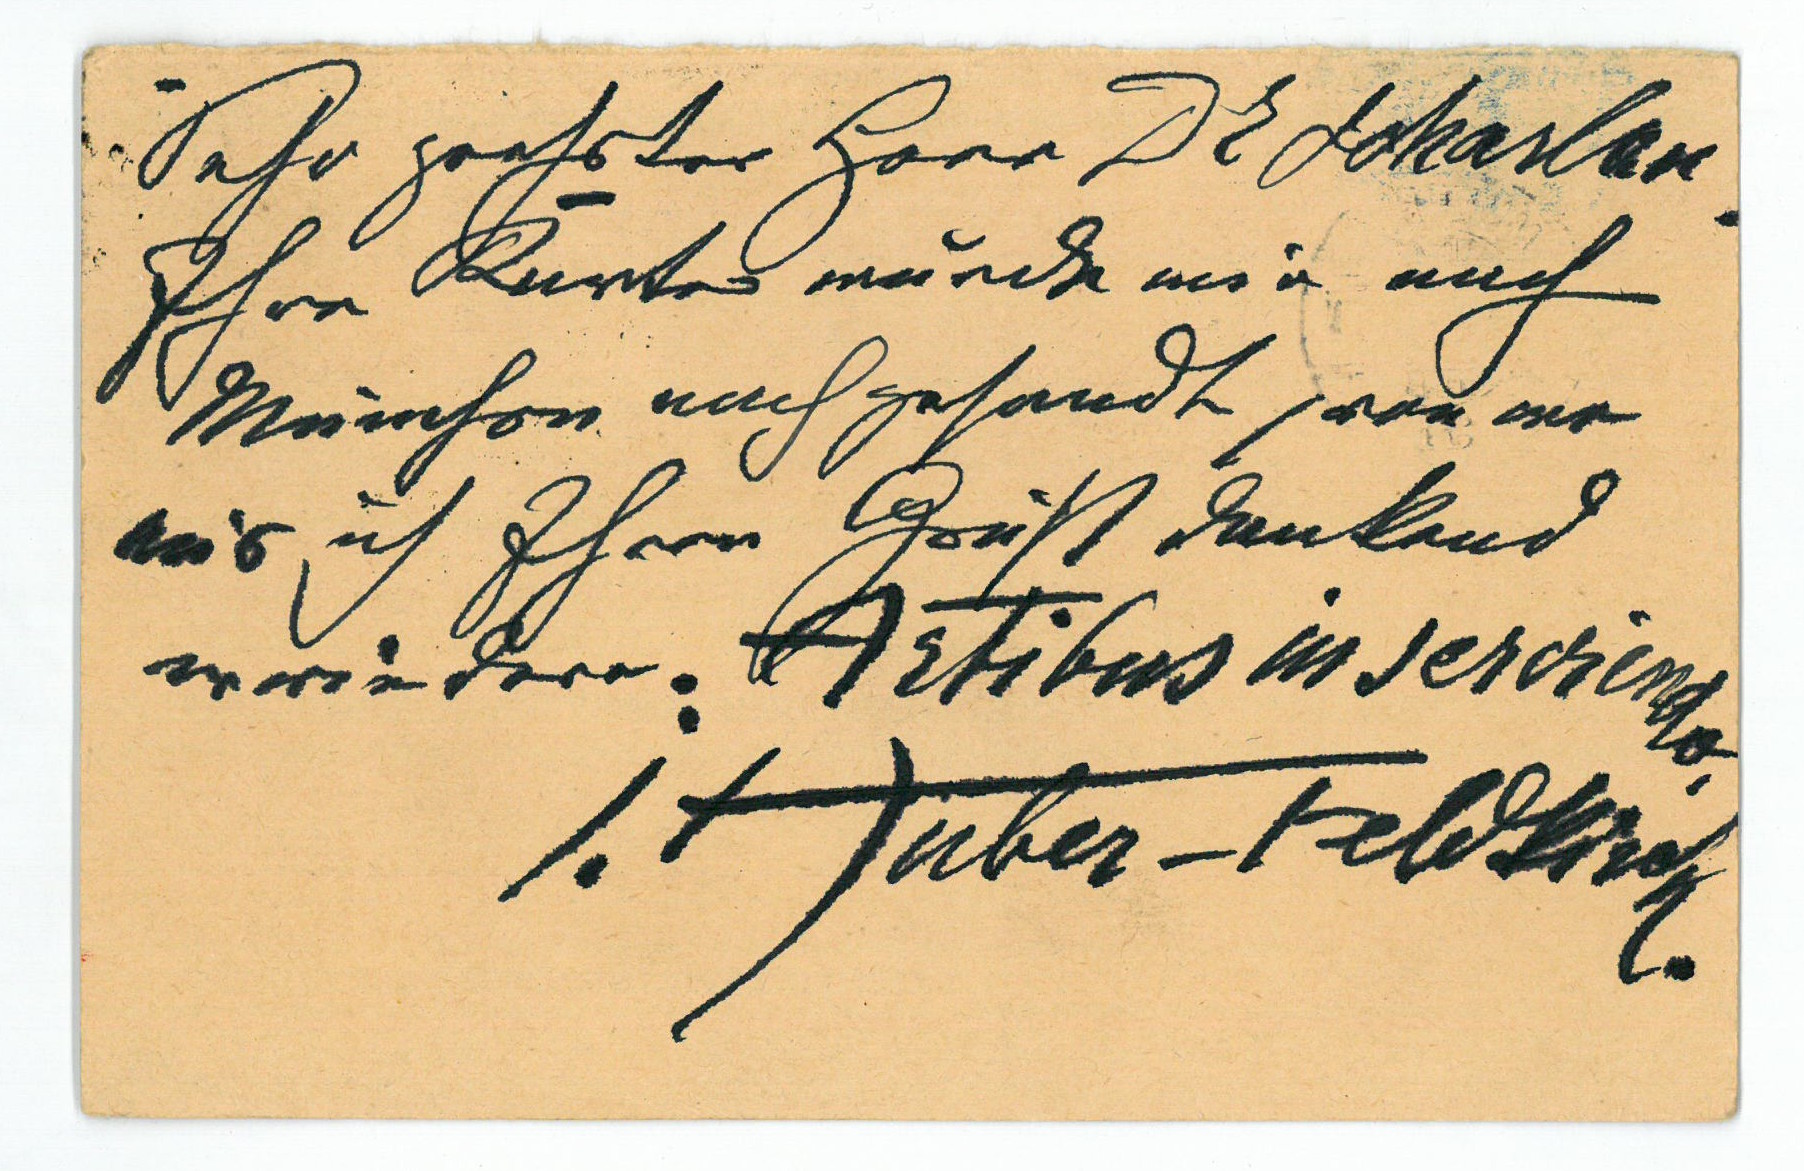 Sehr geehrter Herr Dr Scharlau.
Ihre Karte wurde mir nach
München nachgesandt, von wo
aus ich Ihren Gruß dankend
erwiedere: Artibus inserviendo,
J. Huber-Feldkirch.